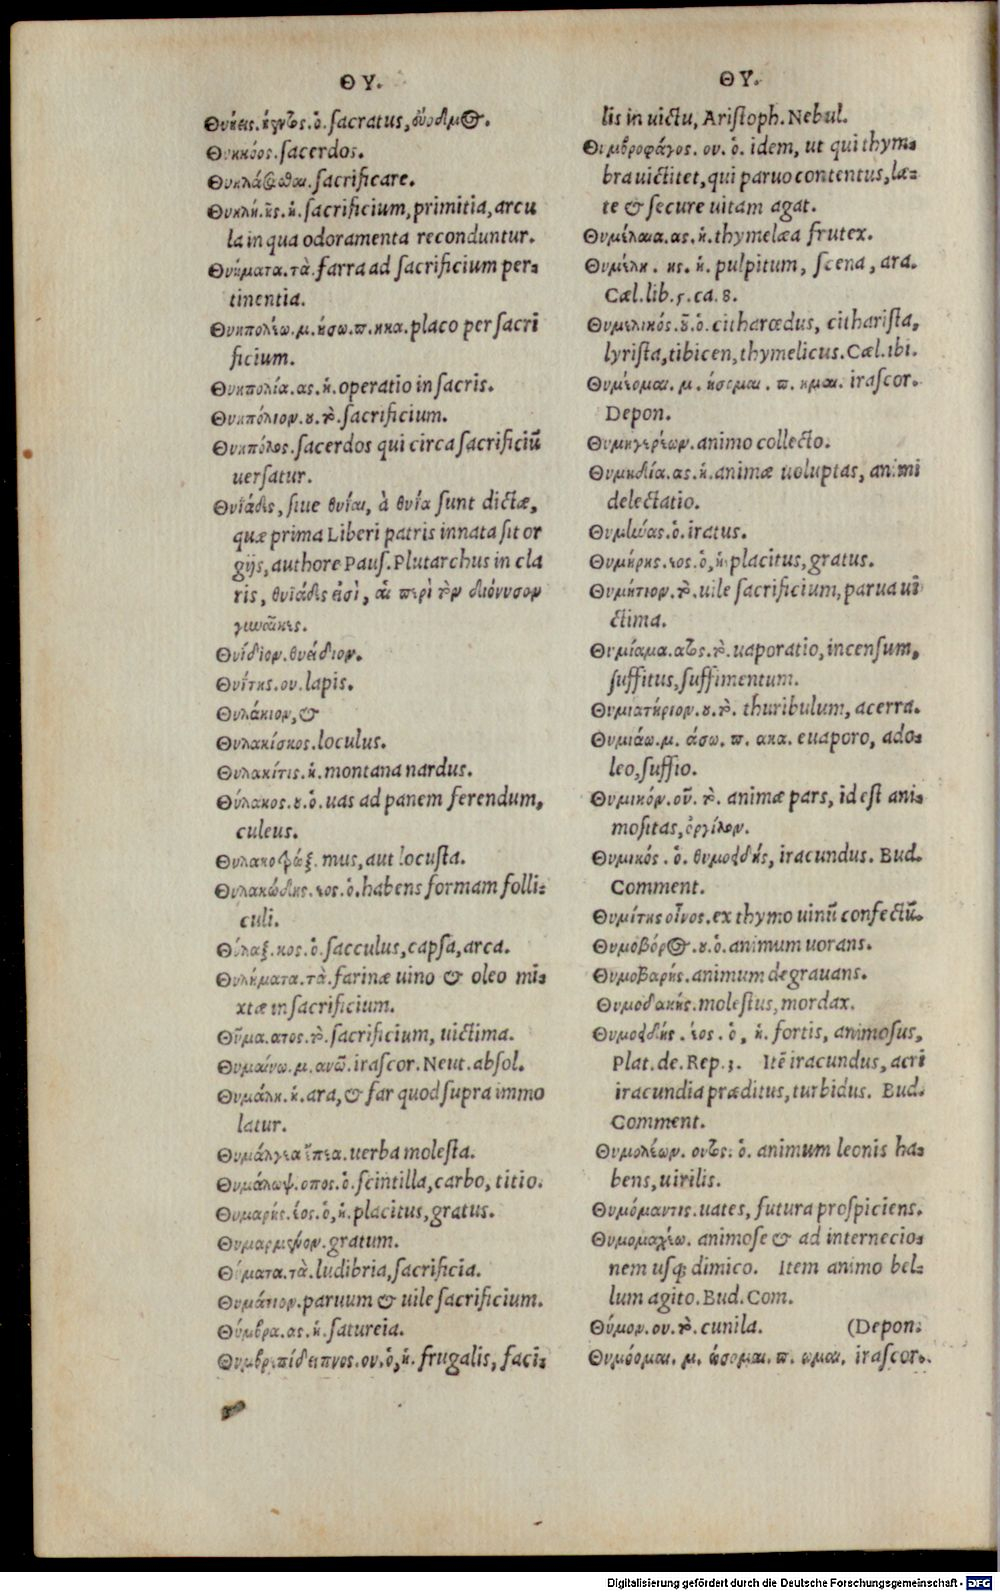 ΘΥ.
Θυήεις. ήεντος. ὁ. sacratus,
Θυηκόος. sacerdos.
sacrificare.
Θυηλή. ῆς. ἡ. sacrificium, primitia, arcu
la in qua odoramenta reconduntur.
Θυήματα. τὰ. farra ad sacrificium per-
tinentia.
Θυηπολέω. μ. ήσω. π. ηκα. placo per sacri
ficium.
Θυηπολία. ας. ἡ. operatio in sacris.
Θυηπόλιον. ου. τὸ. sacrificium.
Θυηπόλος. sacerdos qui circa sacrificiū
uersatur.
Θυϊάδες, siue θυῖαι, ἀ θυῖα sunt dictæ,
quæ prima Liberi patris innata sit or
gijs, authore Paus. Plutarchus in cla
ris, θυϊάδες εἰσὶ, αἱ περὶ τὸν διόνυσον
γυναῖκες.
Θυΐδιον. θυείδιον.
Θυΐτης. ου. lapis.
Θυλάκιον, &
Θυλακίσκος. loculus.
Θυλακίτις. ἡ. montana nardus.
Θύλακος. ου. ὁ. uas ad panem ferendum,
culeus.
Θυλακοφώξ. mus, aut locusta.
Θυλακώδης. εος. ὁ. habens formam folli-
culi.
Θύλαξ. κος. ὁ. sacculus, capsa, arca.
Θυλήματα. τὰ. farinæ uino & oleo mi-
xtæ in sacrificium.
Θῦμα. ατος. τὸ. sacrificium, uictima.
Θυμαίνω. μ. ανῶ. irascor. Neut. absol.
Θυμάλη. ἡ. ara, & far quod supra immo
latur.
Θυμάλγεα ἔπεα. uerba molesta.
Θυμάλωψ. οπος. ὁ. scintilla, carbo, titio.
Θυμαρής. έος. ὁ, ἡ. placitus, gratus.
Θυμαρμενον. gratum.
Θύματα. τὰ. ludibria, sacrificia.
Θυμάτιον. paruum & uile sacrificium.
Θύμβρα. ας. ἡ. satureia.
Θυμβρεπίδειπνος. ου, ὁ, ἡ. frugalis, faci-
ΘΥ.
lis in uictu, Aristoph. Nebul.
Θυμβροφάγος. ου. ὁ. idem, ut qui thym-
bra uictitet, qui paruo contentus, læ-
te & secure uitam agat.
Θυμέλαια. ας. ἡ. thymelæa frutex.
Θυμέλη. ης. ἡ. pulpitum, scena, ara.
Cæl. lib. 5. ca. 8.
Θυμελικός. οῦ. ὁ. citharœdus, citharista,
lyrista, tibicen, thymelicus. Cæl. ibi.
Θυμέομαι. μ. ήσομαι. π. ημαι. irascor.
Depon.
Θυμηγερέων. animo collecto.
Θυμηδία. ας. ἡ. animæ uoluptas, animi
delectatio.
Θυμήνας. ὁ. iratus.
Θυμήρης. εος. ὁ, ἡ. placitus, gratus.
Θυμήτιον. τὸ. uile sacrificium, parua ui
ctima.
Θυμίαμα. ατος. τὸ. uaporatio, incensum,
suffitus, suffimentum.
Θυμιατήριον. ου. τὸ. thuribulum, acerra.
Θυμιάω. μ. άσω. π. ακα. euaporo, ado-
leo, suffio.
Θυμικόν. οῦ. τὸ. animæ pars, id est ani-
mositas, ὀργίλον.
Θυμικός. ὁ. θυμοειδής, iracundus. Bud.
Comment.
Θυμίτης οἶνος. ex thymo uinū confectū.
Θυμοβόρος. ου. ὁ. animum uorans.
Θυμοβαρής. animum degrauans.
Θυμοδακής. molestus, mordax.
Θυμοειδής. έος. ὁ, ἡ. fortis, animosus,
Plat. de. Rep. 3. Itē iracundus, acri
iracundia præditus, turbidus. Bud.
Comment.
Θυμολέων. οντος. ὁ. animum leonis ha-
bens, uirilis.
Θυμόμαντις. uates, futura prospiciens.
Θυμομαχέω. animose & ad internecio-
nem usq; dimico. Item animo bel-
lum agito. Bud. Com.
Θύμον. ου. τὸ. cunila. (Depon.
Θυμόομαι. μ. ώσομαι. π. ωμαι. irascor.
Digitalisierung gefördert durch die Deutsche Forschungsgemeinschaft - DFG